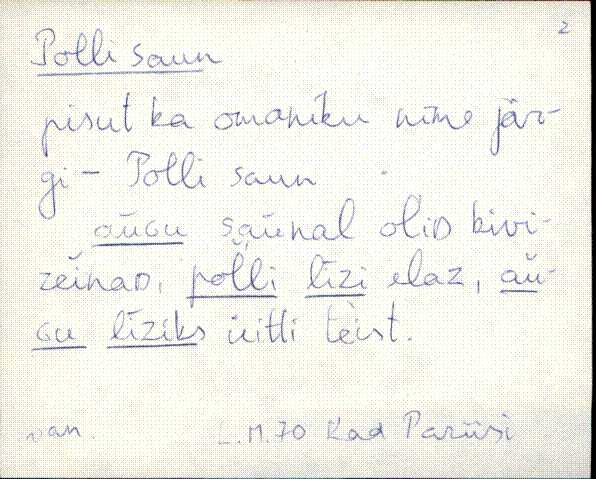 2
Polli saun
pisut ka omaniku nime jär-
gi - Polli saun
aŭGu sаŭnal oliD kivi-
zeĭnaD, polli līzi elaz, aŭ-
Gu līziks üitti tèist.
van. L.M.70 Kad Pariisi